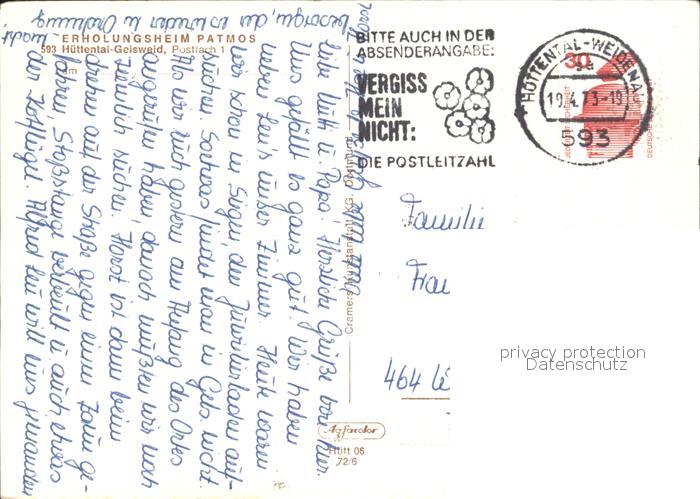 ERHOLUNGSHEIM PATMOS
593 Hüttental-Geisweid, Postfach 1
BITTE AUCH IN DER
ABSENDERANGABE:
VERGISS
MEIN
NICHT:
DIE POSTLEITZAHL
HÜTTENTAL-WEIDENAU
19.4.73-19
593
30
Liebe Mutti u. Papa! Herzliche Grüße von hier.
Uns gefällt es ganz gut. Wir haben
neben Leni's unser Zimmer. Heute waren
wir schon in Siegen, den Juwelierladen auf-
suchen. Sowas findet man in Geis. nicht.
Als wir euch gestern am Anfang des Ortes
angerufen haben, danach mußten wir noch
ziemlich suchen. Horst ist dann beim
drehen auf der Straße gegen einen Zaun ge-
fahren, Stoßstange verbeult u. auch etwas
der Kotflügel. Alfred will uns jemanden
besorgen, der es wieder in Ordnung
macht
Familie
Frau
464
Cramers Kunstanstalt KG, Dortmund
Hütt 06
72/6
privacy protection
Datenschutz